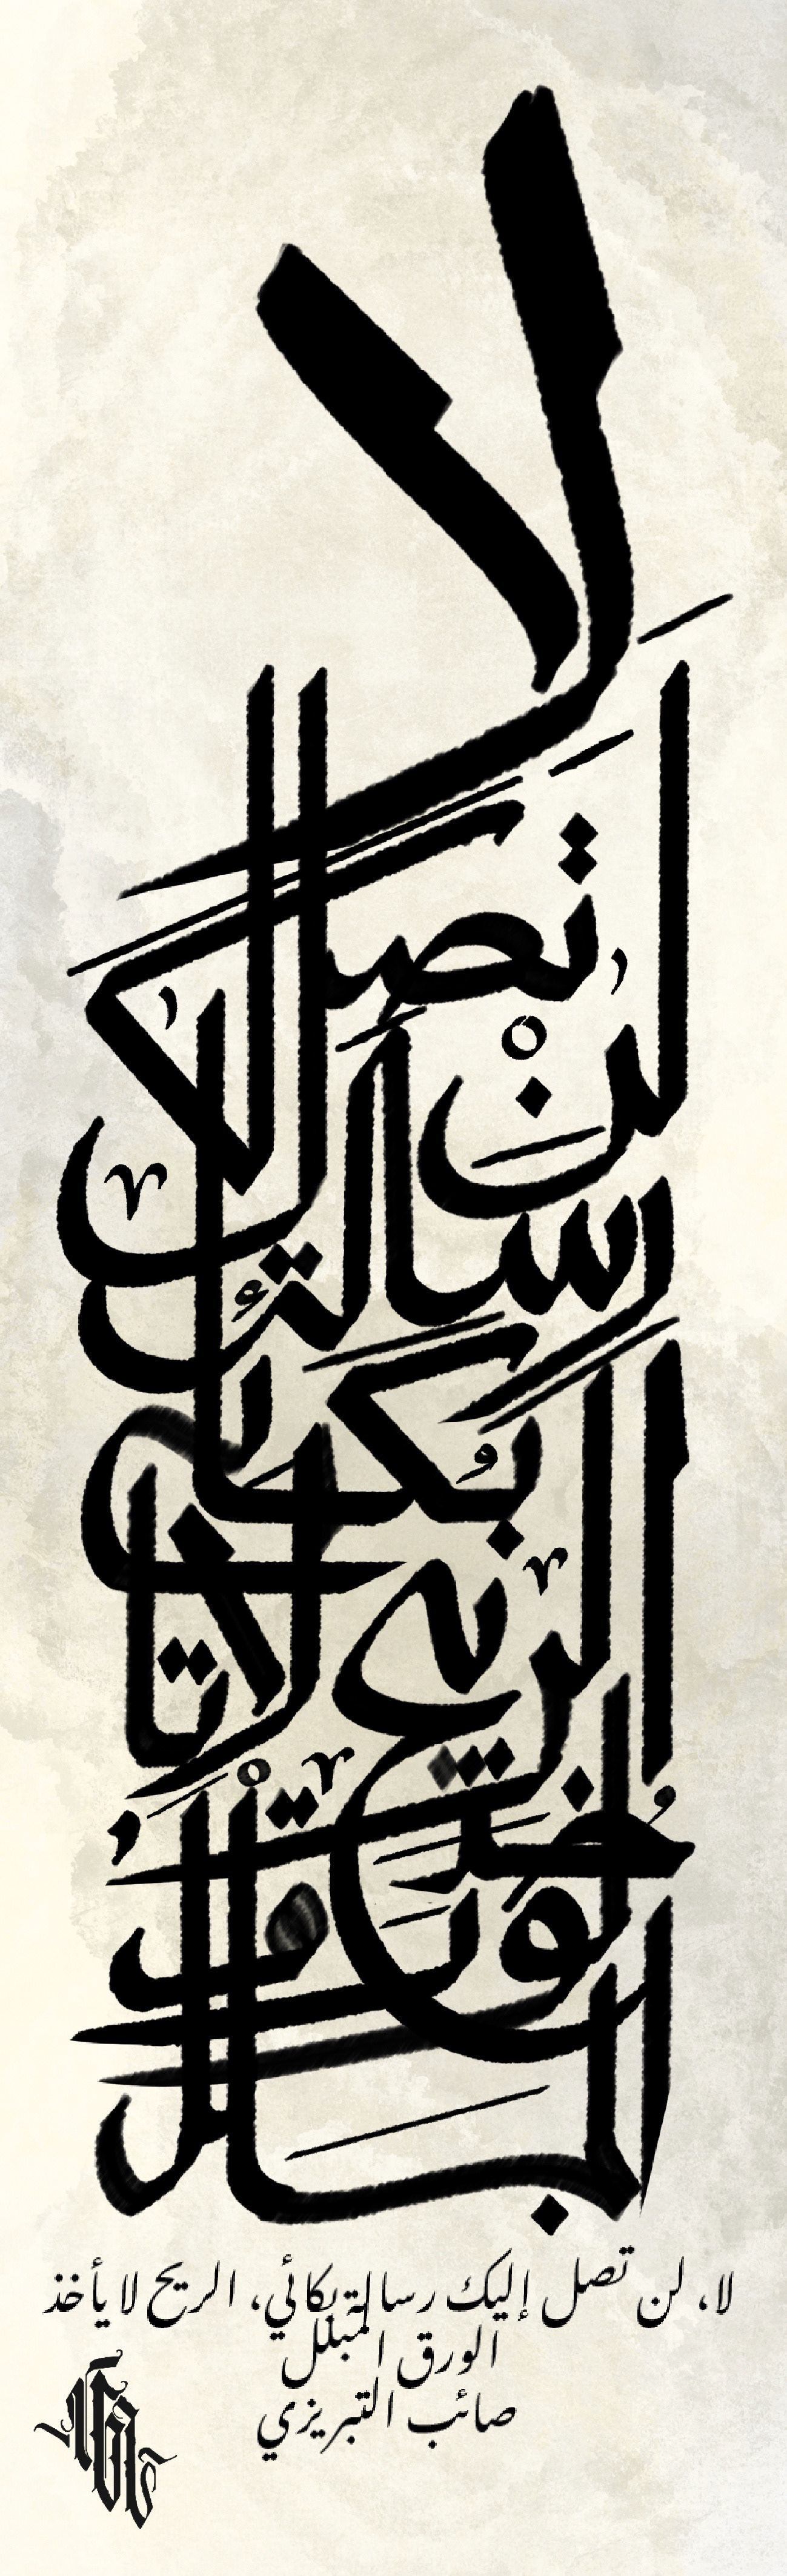 لا
لن تصل إليك
رسالة
بكائي
الريح لا تأخذ
الورق
المبلل
لا، لن تصل إليك رسالة بكائي، الريح لا يأخذ
الورق المبلل
صائب التبريزي